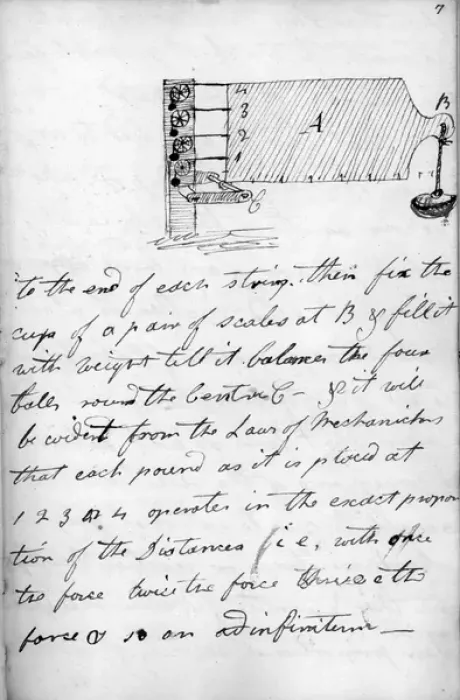 7
4
3
2
1
A
B
C
to the end of each string. then fix the
cup of a pair of scales at B & fill it
with weight till it balances the four
balls round the Centre C - & it will
be evident from the Laws of Mechanicks
that each pound as it is placed at
1 2 3 or 4 operates in the exact propor
tion of the Distances (i e, with once
the force twice the force thrice the
force & so on adinfinitum —